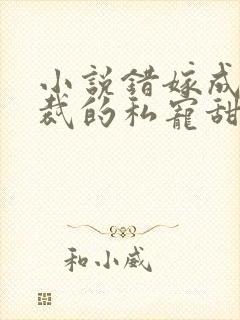 小説錯嫁成
裁的私寵甜
和小威